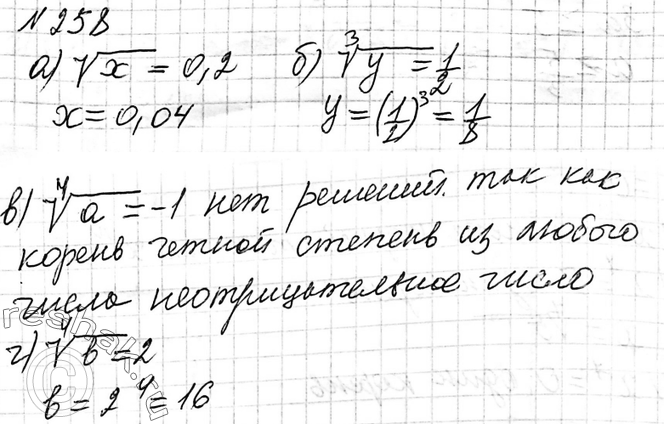 №258
а) √x = 0,2 б) ³√y = 1/2
x = 0,04 y = (1/2)³ = 1/8
в) ⁴√a = -1 нет решений. так как
корень четной степень из любого
числа неотрицательное число
г) ⁴√b = 2
b = 2⁴ = 16
reshak.ru